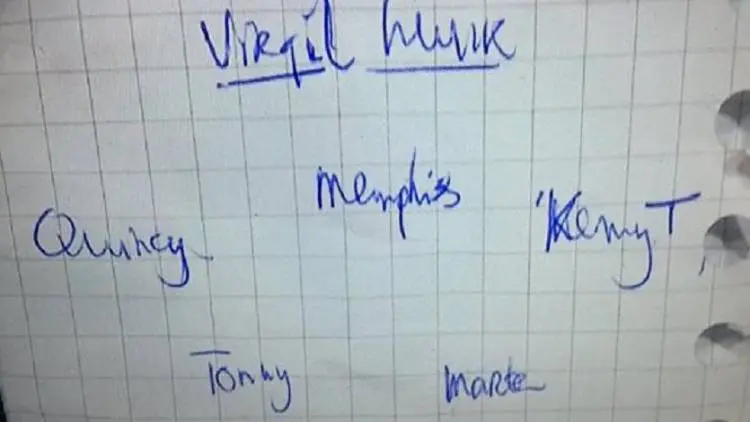 Virgil Luuk
Memphis
Quincy Kenny T
Tonny Marten